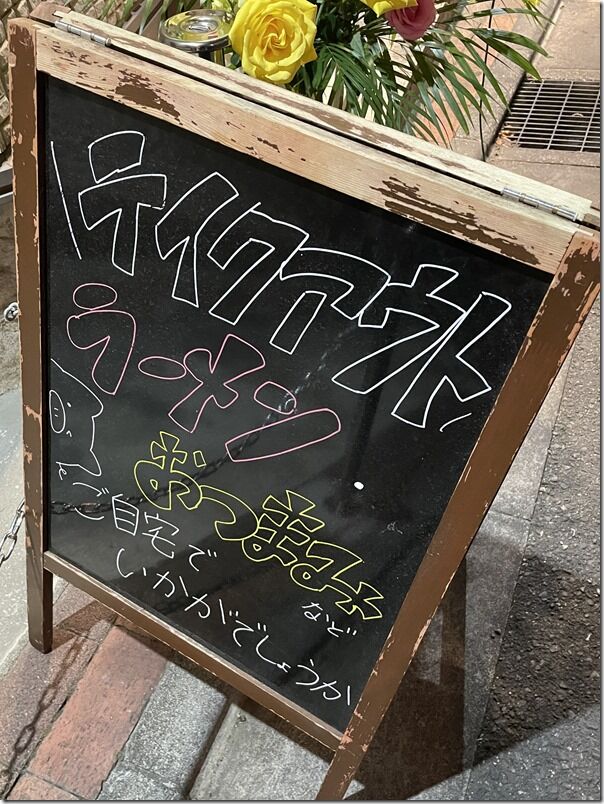 テイクアウト
ラーメン
おつまみ
など
ご自宅で
いかがでしょうか